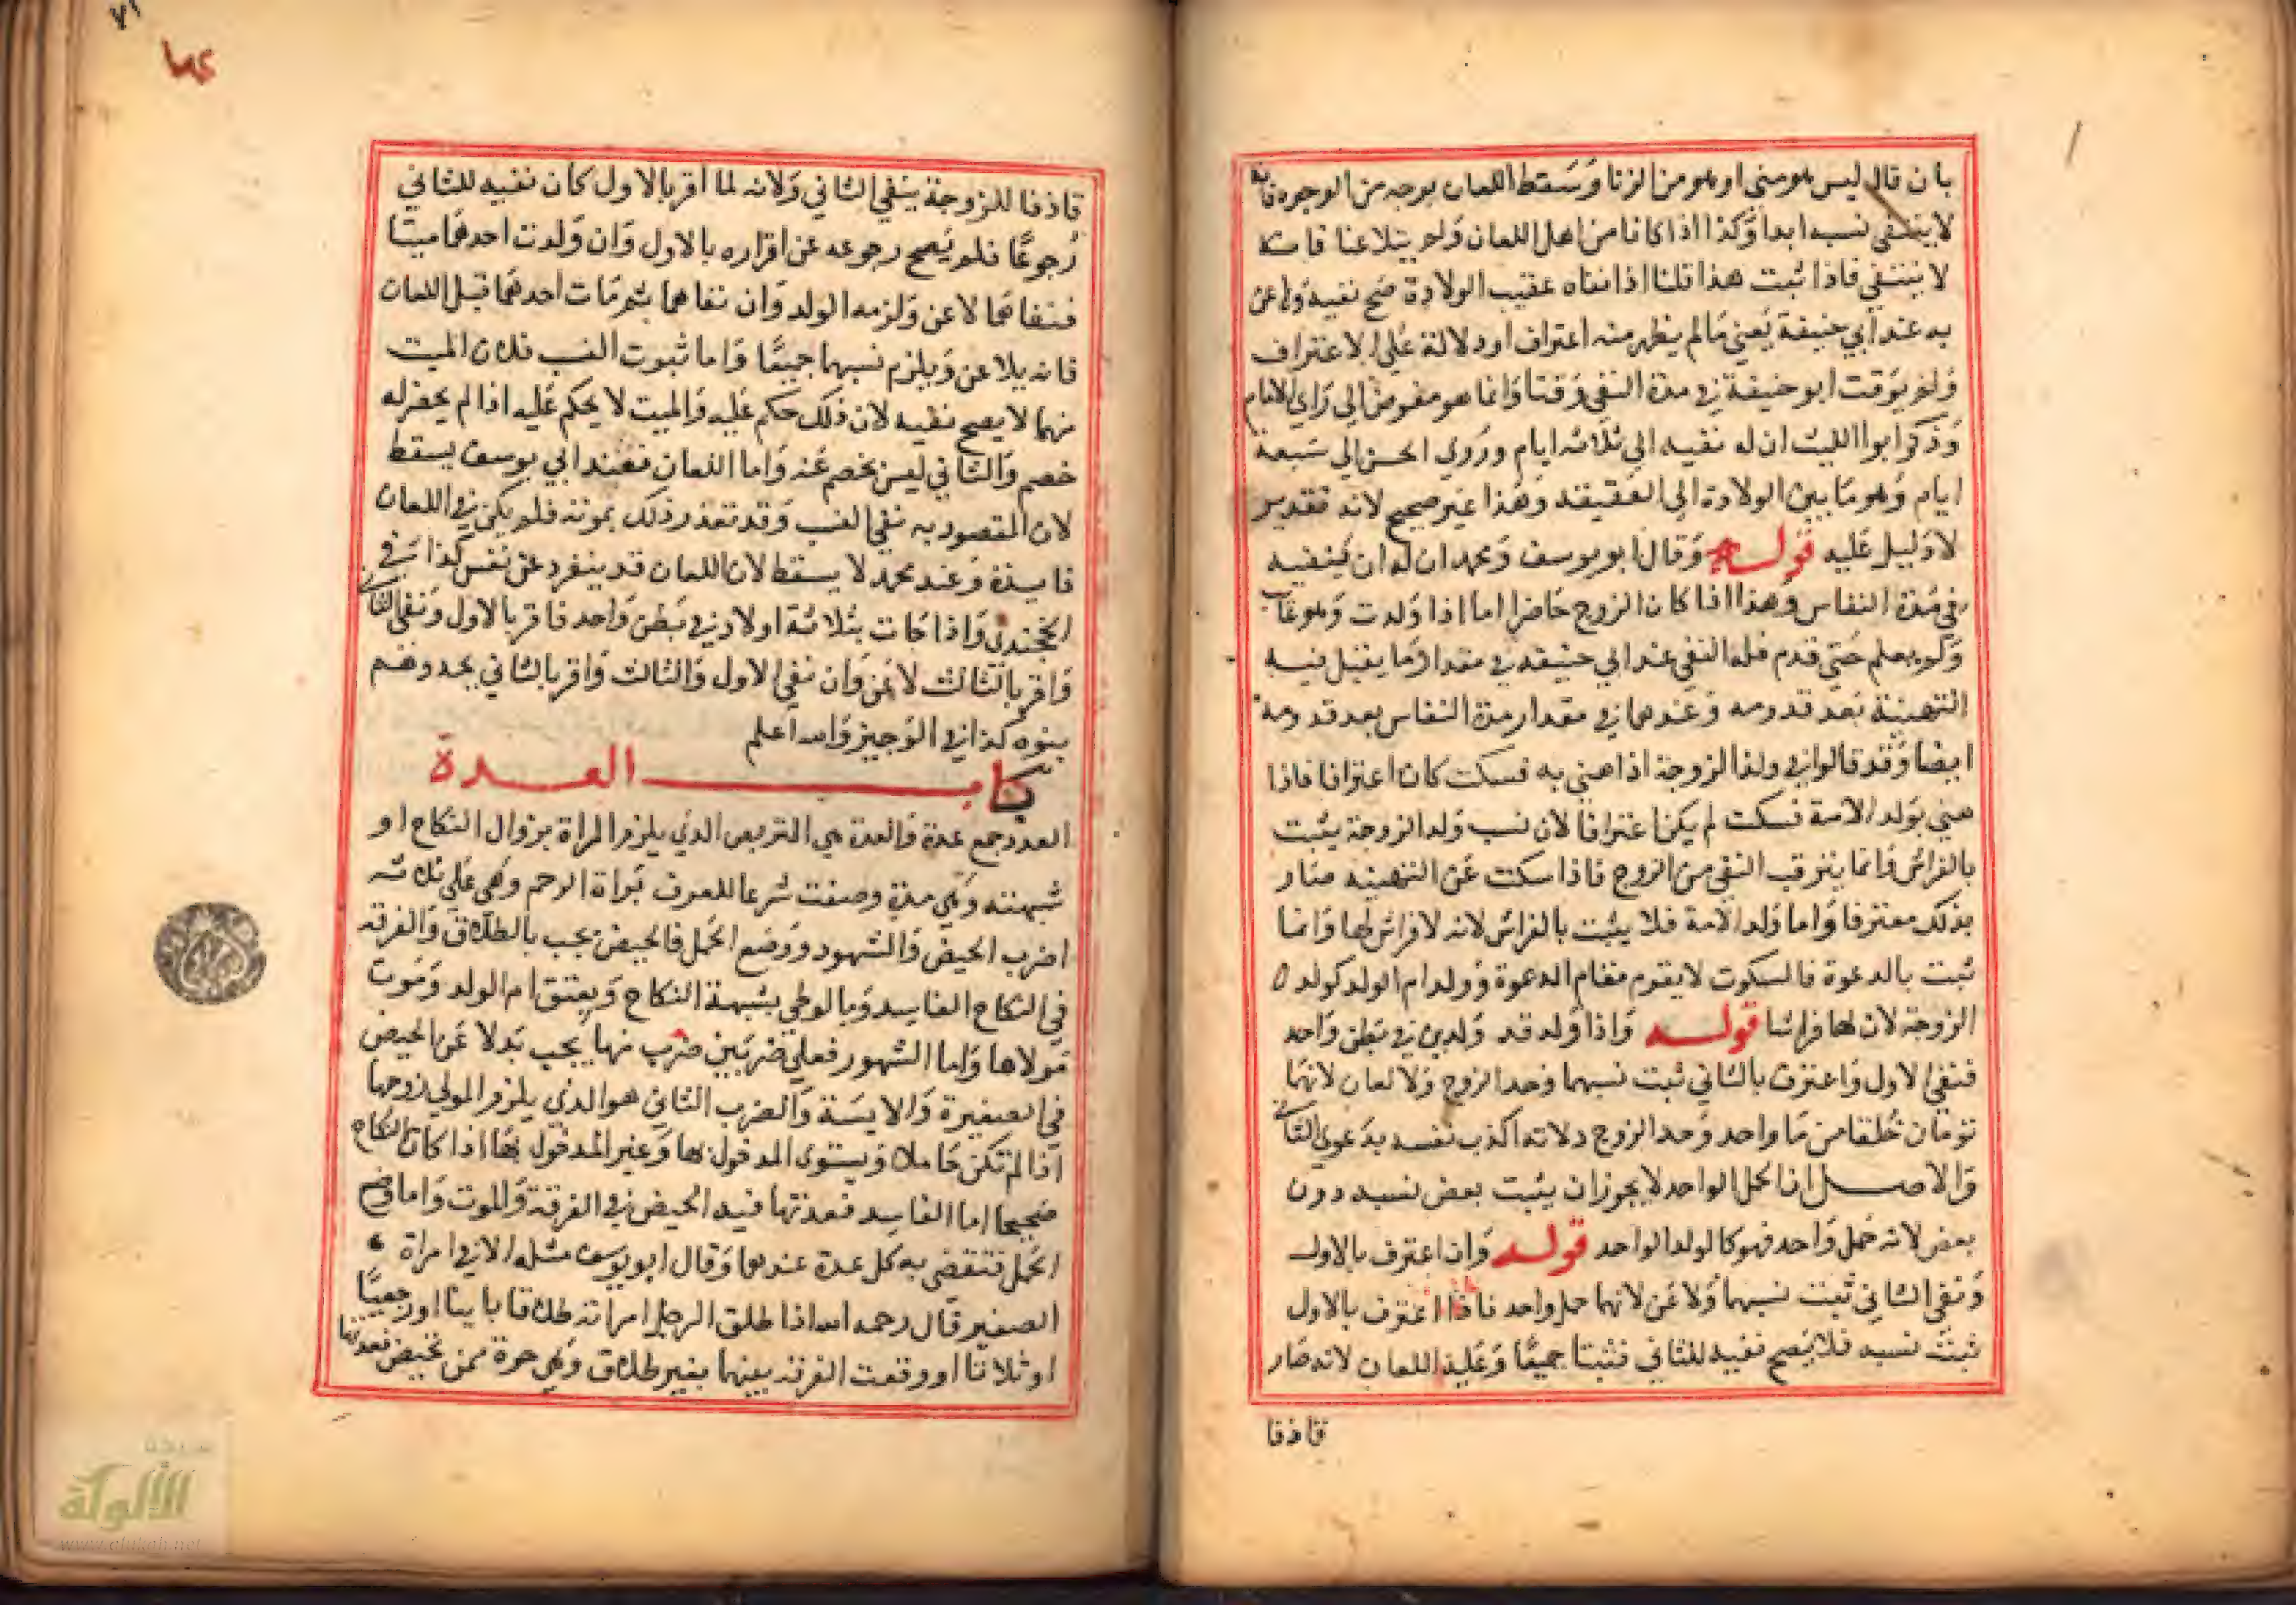 بان قال ليس هو مني او هو من الزنا وسقط اللعان بوجه من الوجوه فانه
لا ينتفي نسبه ابدا وكذا اذا كانا من اهل اللعان ولم يتلاعنا فانه
لا ينتفي فاذا ثبت هذا قلنا اذا نفاه عقيب الولادة صح نفيه ولاعن
به عند ابي حنيفة يعني ما لم يظهر منه اعتراف او دلالة على الاعتراف
ولم يوقت ابو حنيفة في مدة النفي وقتا وانما هو مفوض الى راي الامام
وذكر ابو الليث ان له نفيه الى ثلاثه ايام وروي الحسن الى سبعة
ايام وهو ما بين الولادة الى العقيقة وهذا غير صحيح لانه تقدير
لا دليل عليه قوله وقال ابو يوسف ومحمد ان له ان ينفيه
في مدة النفاس وهذا اذا كان الزوج حاضرا اما اذا ولدت وهو غايب
ولم يعلم حتى قدم فله النفي عند ابي حنيفه في مقدار ما يقبل فيه
التهنية بعد قدومه وعندهما في مقدار مدة النفاس بعد قدومه
ايضا وقد قالوا في ولد الزوجة اذا هني به فسكت كان اعترافا فاذا
هني بولد الامة فسكت لم يكن اعترافا لان نسب ولد الزوجة يثبت
بالفراش وانما يترقب النفي من الزوج فاذا سكت عن التهنيه صار
بذلك معترفا واما ولد الامة فلا يثبت بالفراش لانه لا فراش لها وانما
ثبت بالدعوة فالسكوت لا يقوم مقام الدعوة وولد ام الولد كولد
الزوجة لان لها فراشا قوله واذا ولدت ولدين في بطن واحد
فنفى الاول واعترف بالثاني ثبت نسبهما وحد الزوج ولا لعان لانهما
توءمان خلقا من ما واحد وحد الزوج لانه اكذب نفسه بدعوي الثاني
والاصل ان الحمل الواحد لا يجوز ان يثبت بعض نسبه دون
بعض لانه حمل واحد فهو كالولد الواحد قوله وان اعترف بالاول
ونفى الثاني ثبت نسبهما ولاعن لانهما حمل واحد فاذا اعترف بالاول
ثبت نسبه فلا يصح نفيه للثاني فثبتا جميعا وعليه اللعان لانه صار
قاذفا
٧١
قاذفا للزوجة بنفي الثاني ولانه لما اقر بالاول كان نفيه للثاني
رجوعا فلم يصح رجوعه عن اقراره بالاول وان ولدت احدهما ميتا
فنفاهما لاعن ولزمه الولد وان نفاهما ثم مات احدهما قبل اللعان
فانه يلاعن ويلزم نسبهما جميعا واما ثبوت النسب فلان الميت
منهما لا يصح نفيه لان ذلك حكم عليه والميت لا يحكم عليه اذا لم يحضر له
خصم والثاني ليس بخصم عنه واما اللعان فعند ابي يوسف يسقط
لان المقصود به نفي النسب وقد تعذر ذلك بموته فلم يكن في اللعان
فايدة وعند محمد لا يسقط لان اللعان قد ينفرد عن نفس كذا في
الخجندي واذا جات بثلاثة اولاد في بطن واحد فاقر بالاول ونفى الثاني
واقر بالثالث لاعن وان نفى الاول والثالث واقر بالثاني يحد وهم
بنوه كذا في الوجيز والله اعلم
كتاب العدة
العدد جمع عدة والعدة هي التربص الذي يلزم المراة بزوال النكاح او
شبهته وهي مدة وضعت شرعا للتعرف براة الرحم وهي على ثلاثه
اضرب الحيض والشهور ووضع الحمل فالحيض يجب بالطلاق والفرقة
في النكاح الفاسد وبالوطي بشبهة النكاح وبعتق ام الولد وموت
مولاها واما الشهور فعلى ضربين ضرب منها يجب بدلا عن الحيض
في الصغيرة والايسة والضرب الثاني هو الذي يلزم المتوفى زوجها
اذا لم تكن حاملا ويستوي المدخول بها وغير المدخول بها اذا كان النكاح
صحيحا اما الفاسد فعدتها فيه الحيض في الفرقة والموت واما وضع
الحمل فتنقضي به كل عدة عندهما وقال ابو يوسف مثله الا في امراة
الصغير قال رحمه الله اذا طلق الرجل امراته طلاقا باينا او رجعيا
او ثلاثا او وقعت الفرقة بينهما بغير طلاق وهي حرة ممن تحيض فعدتها
شبكة
الألوكة
www.alukah.net